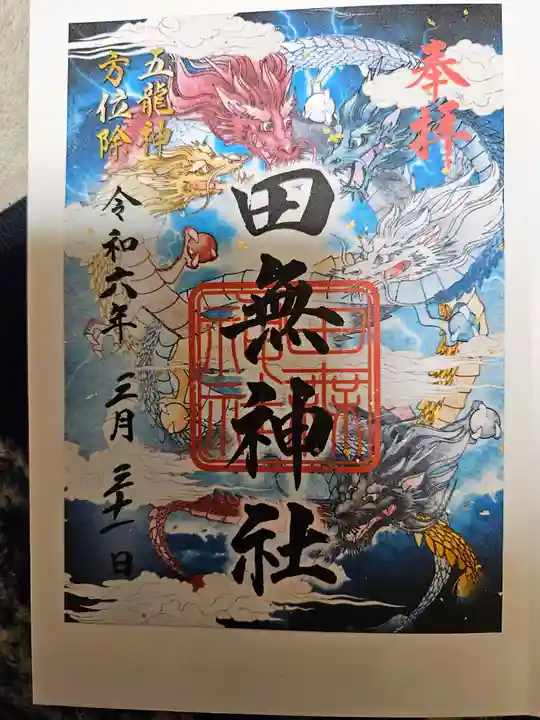 奉拝
田無神社
五龍神
方位除
令和六年 三月 三十一日